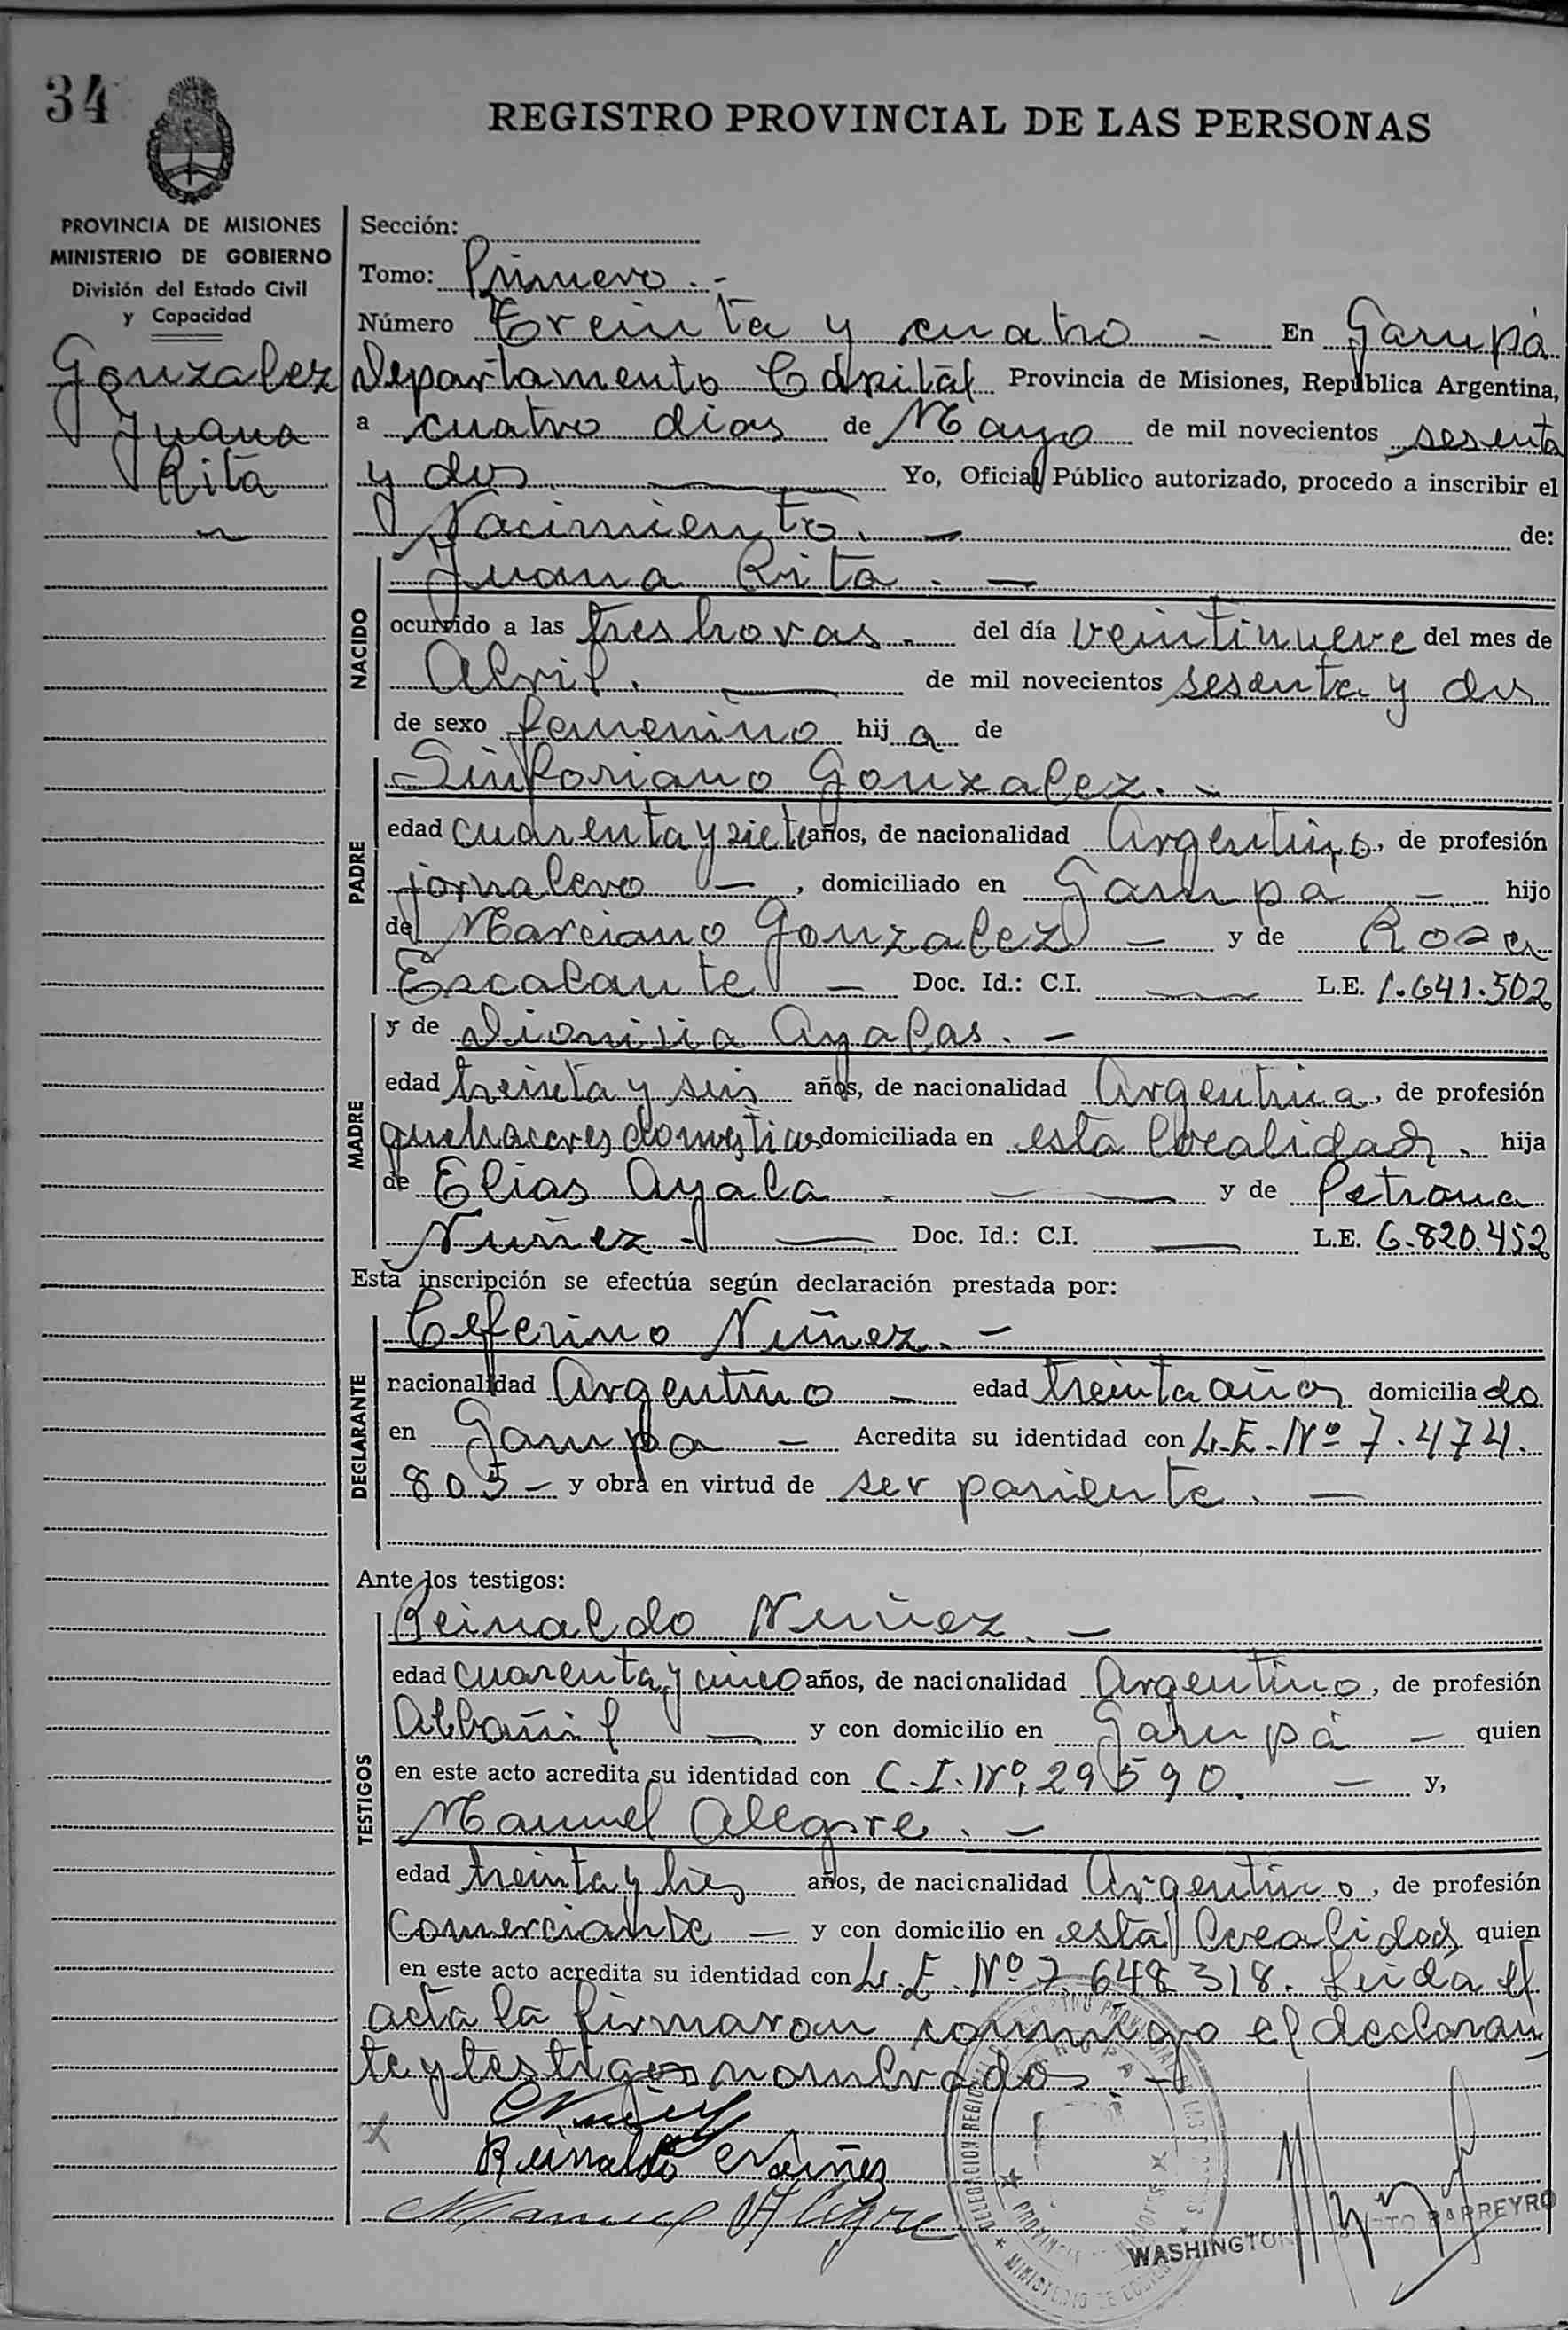 34
REGISTRO PROVINCIAL DE LAS PERSONAS
PROVINCIA DE MISIONES
MINISTERIO DE GOBIERNO
División del Estado Civil
y Capacidad
Gonzalez
Juana
Rita
Sección:
Tomo: Primero.-
Número Treinta y cuatro - En Garupá
Departamento Capital Provincia de Misiones, República Argentina,
a cuatro dias de Mayo de mil novecientos sesenta
y dos Yo, Oficial Público autorizado, procedo a inscribir el
Nacimiento. - de:
NACIDO
Juana Rita. -
ocurrido a las tres horas. del día veintinueve del mes de
Abril. de mil novecientos sesenta y dos
de sexo femenino hij a de
PADRE
Sinforiano Gonzalez. -
edad cuarenta y siete años, de nacionalidad Argentino, de profesión
jornalero -, domiciliado en Garupa - hijo
de Marciano Gonzalez - y de Rosa
Escalante - Doc. Id.: C.I. L.E. 1.641.502
MADRE
y de Dionisia Ayalas. -
edad treinta y seis años, de nacionalidad Argentina, de profesión
quehaceres domesticos domiciliada en esta localidad. hija
de Elias Ayala y de Petrona
Nuñez - Doc. Id.: C.I. L.E. 6.820.452
Esta inscripción se efectúa según declaración prestada por:
DECLARANTE
Ceferino Nuñez. -
racionalidad Argentino - edad treinta años domicilia do
en Garupa - Acredita su identidad con L.E. Nº 7.474.
805 - y obra en virtud de ser pariente. -
Ante los testigos:
TESTIGOS
Reinaldo Nuñez. -
edad cuarenta y cinco años, de nacionalidad Argentino, de profesión
Albañil - y con domicilio en Garupá - quien
en este acto acredita su identidad con C.I. Nº 29590. - y,
Manuel Alegre. -
edad treinta y tres años, de nacionalidad Argentino, de profesión
Comerciante - y con domicilio en esta localidad quien
en este acto acredita su identidad con L.E. Nº 7648318. Leida el
acta la firmaron conmigo el declaran
te y testigos nombrados -
Reinaldo Nuñez
Manuel Alegre
WASHINGTON BARREYRO